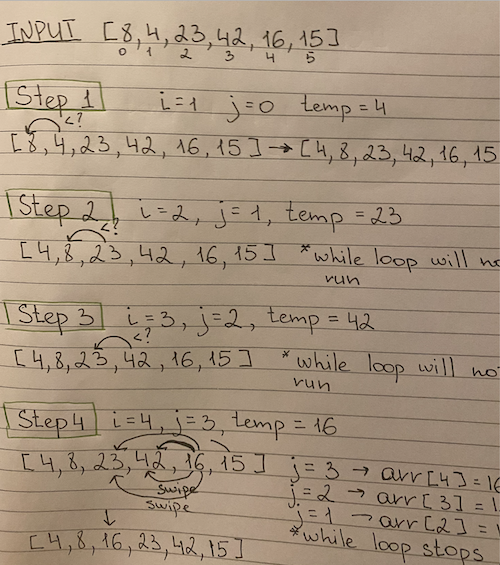 INPUT [8, 4, 23, 42, 16, 15]
0 1 2 3 4 5
Step 1 i=1 j=0 temp=4
<?
[8, 4, 23, 42, 16, 15] → [4, 8, 23, 42, 16, 15
Step 2, i=2, j=1, temp=23
<?
[4, 8, 23, 42, 16, 15] *while loop will no
run
Step 3 i=3, j=2, temp=42
<?
[4, 8, 23, 42, 16, 15] *while loop will no
run
Step 4 i=4, j=3, temp=16
[4, 8, 23, 42, 16, 15] j=3 → arr[4]=16
swipe j=2 → arr[3]=1
swipe j=1 → arr[2]=
*while loop stops
↓
[4, 8, 16, 23, 42, 15]